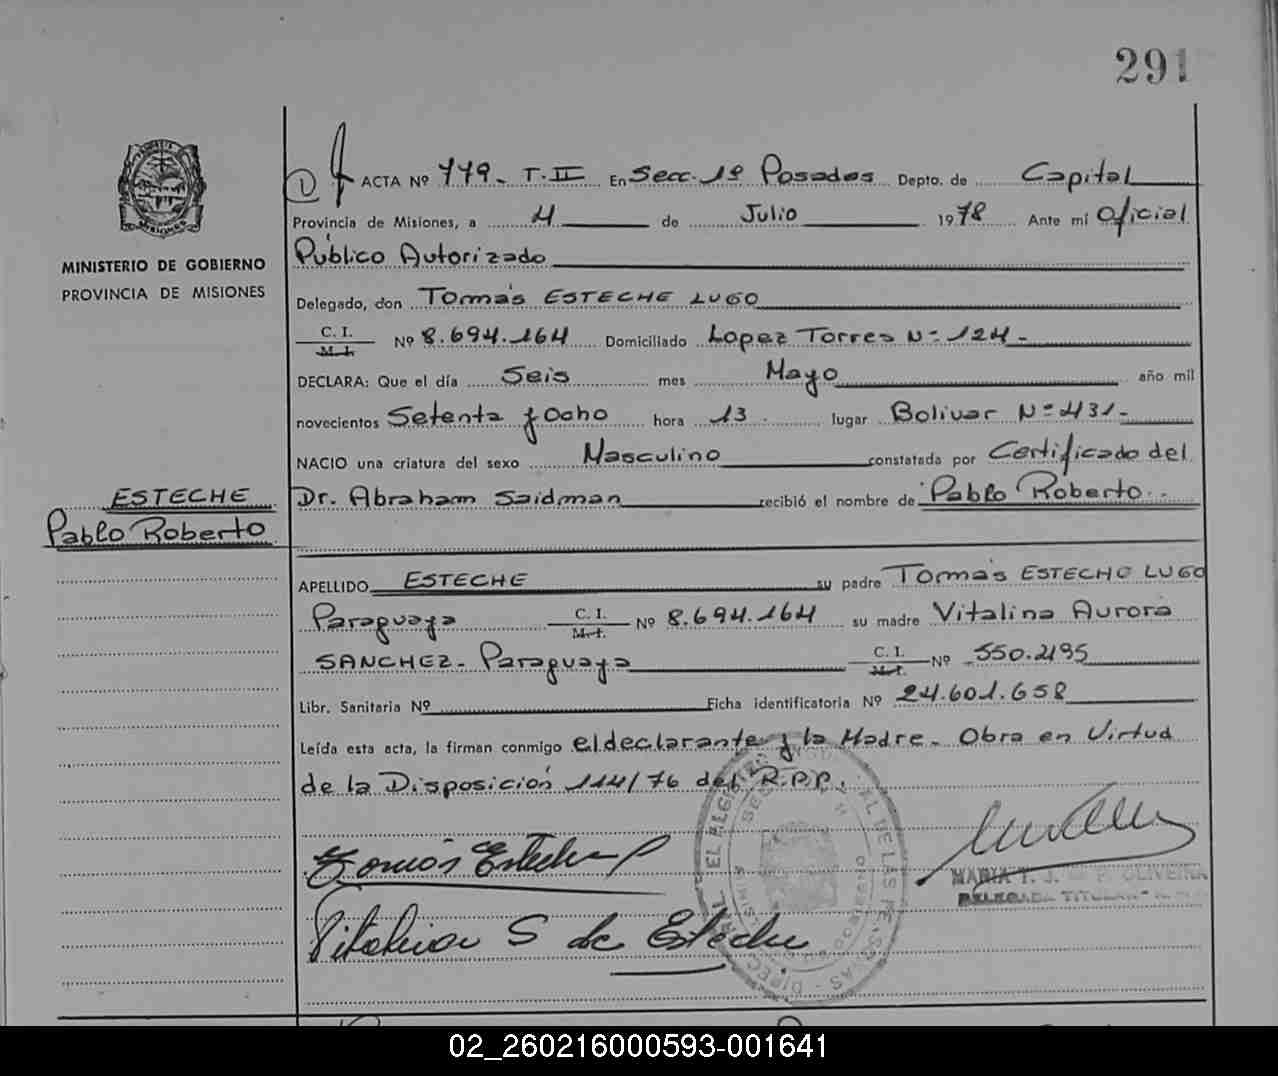 291
MINISTERIO DE GOBIERNO
PROVINCIA DE MISIONES
ESTECHE
Pablo Roberto
ACTA Nº 779 - T. II En Secc. 1º Posadas Depto. de Capital
Provincia de Misiones, a 4 de Julio 1978 Ante mí Oficial
Público Autorizado
Delegado, don Tomás ESTECHE LUGO
C. I. M. I. Nº 8.694.164 Domiciliado Lopez Torres Nº 124.-
DECLARA: Que el día Seis mes Mayo año mil
novecientos Setenta y Ocho hora 13 lugar Bolivar Nº 431-
NACIO una criatura del sexo Masculino constatada por Certificado del
Dr. Abraham Saidman recibió el nombre de Pablo Roberto.
APELLIDO ESTECHE su padre Tomás ESTECHE LUGO
Paraguaya C. I. M. I. Nº 8.694.164 su madre Vitalina Aurora
SANCHEZ - Paraguaya C. I. M. I. Nº 550.495
Libr. Sanitaria Nº Ficha identificatoria Nº 24.601.658
Leída esta acta, la firman conmigo el declarante y la Madre. Obra en Virtud
de la Disposición 114/76 del R.P.P.
Tomás Esteche
Vitalina S de Esteche
OLIVEIRA
DELEGADA TITULAR
02_260216000593-001641